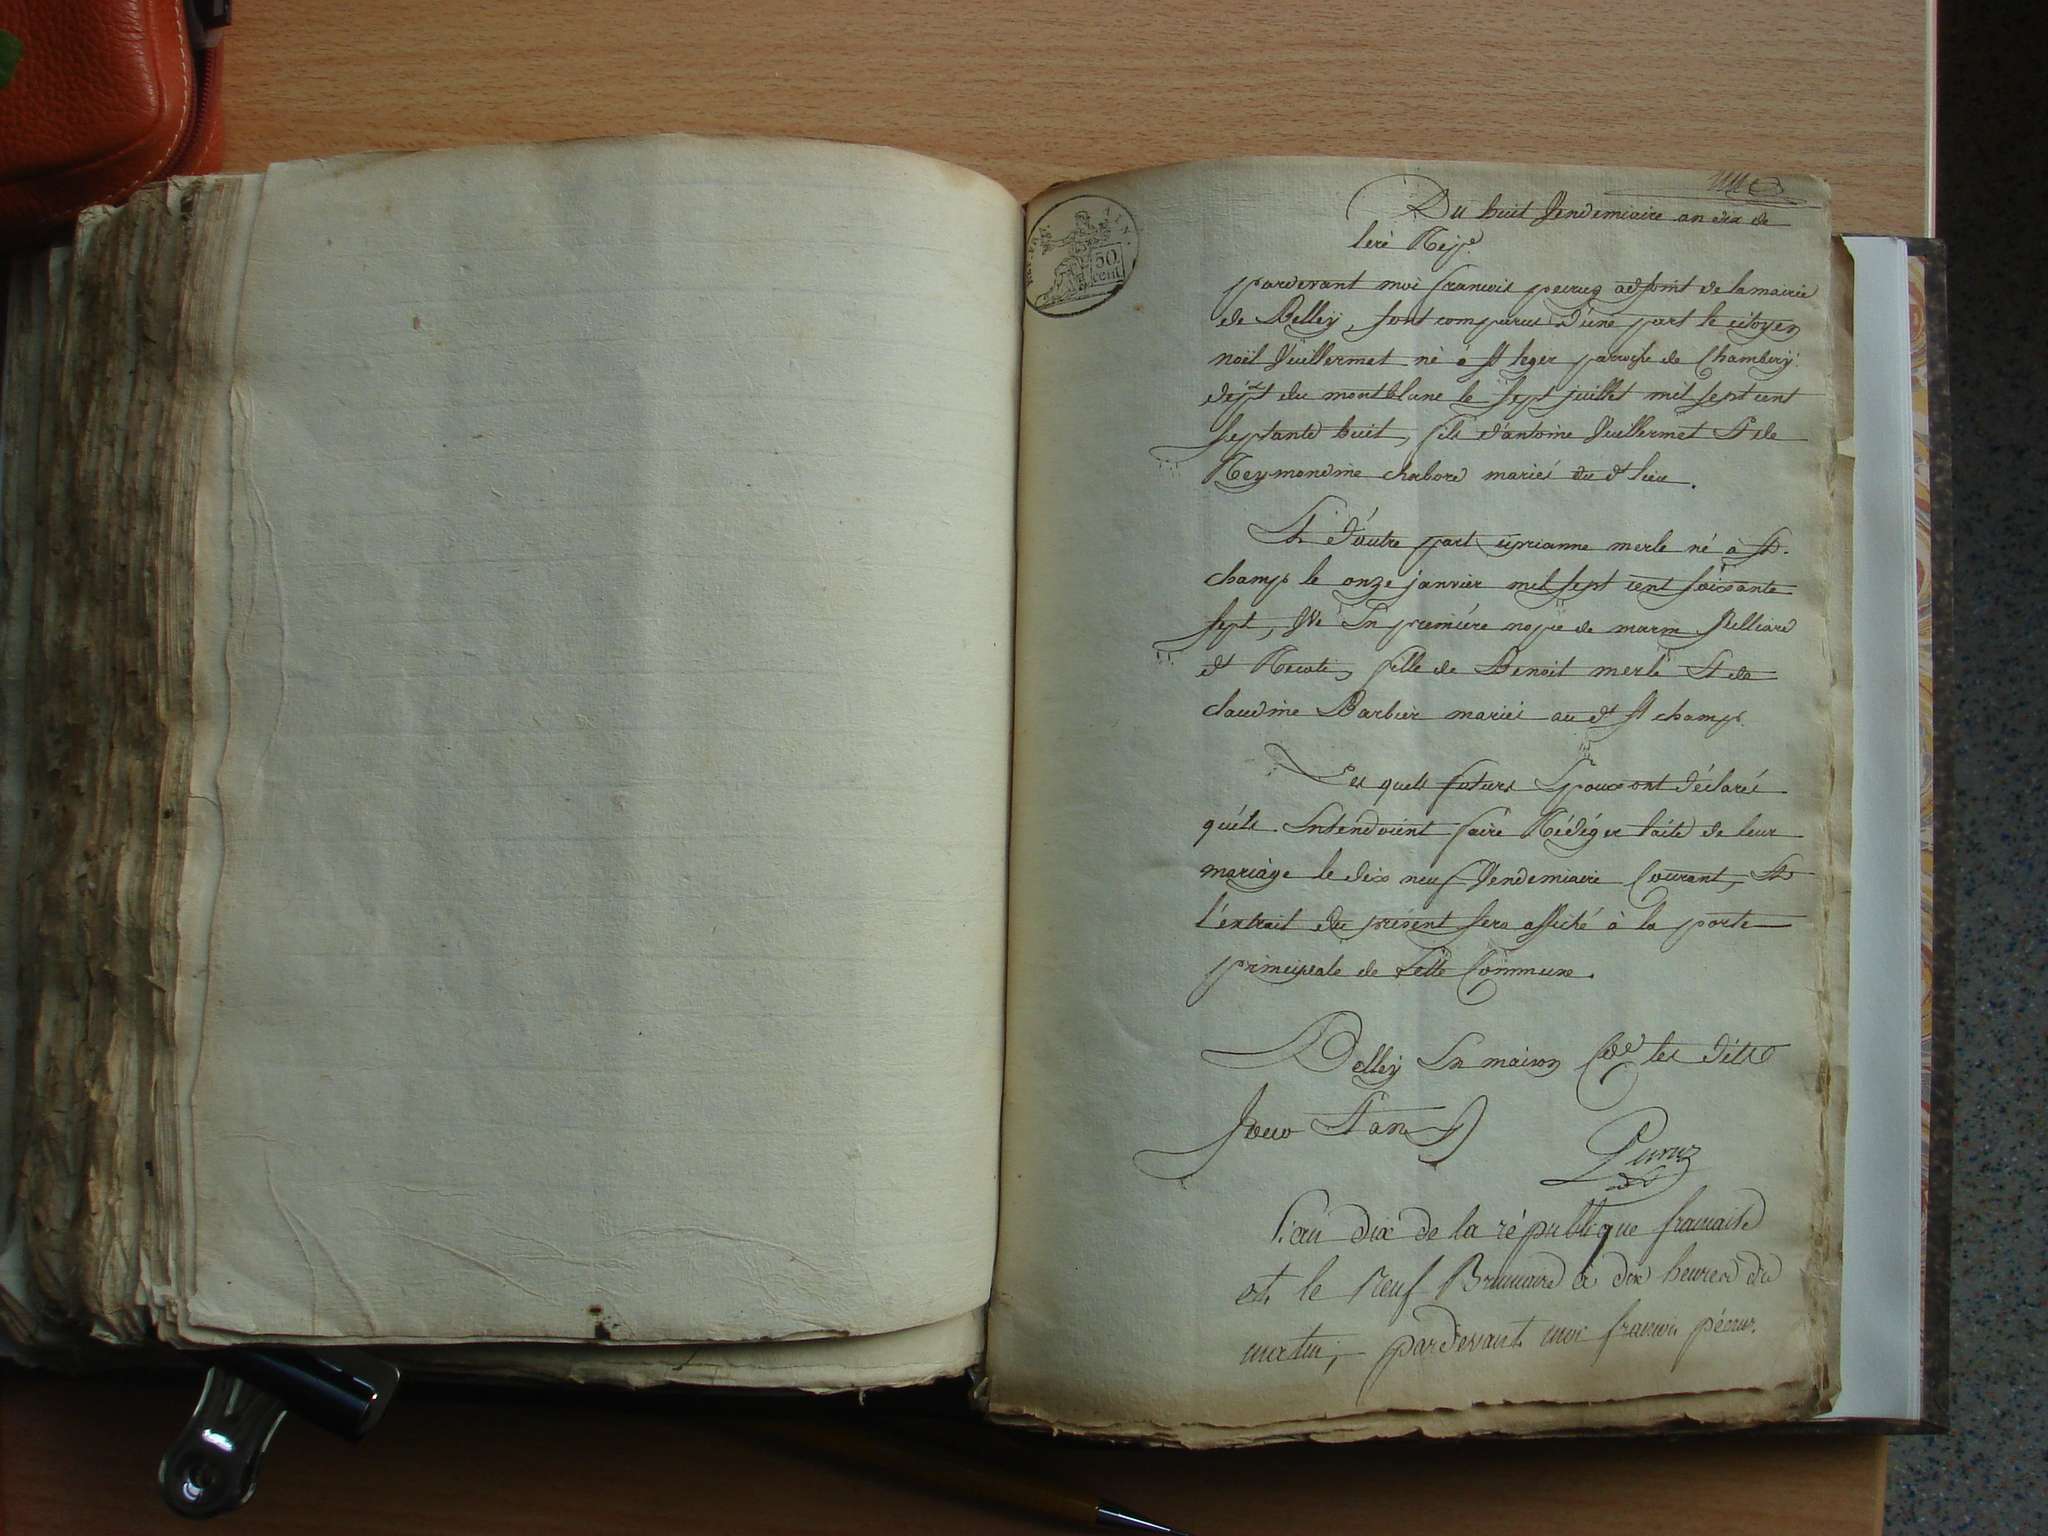 AIN
50
cent.
Du huit Vendemiaire an dix de
l'ere Rep.e
pardevant moi francois pecruq adjoint de la mairie
de Belley, sont comparus d'une part le citoyen
noël Vuillermet né à St leger paroisse de Chambery
dep.t du montblanc le sept juillet mil sept cent
septante huit, fils d'antoine Vuillermet Et de
Reymondine chabord mariés du dt lieu.
Et d'autre part ciprianne merle né à St.
champ le onze janvier mil sept cent soixante
sept, Vve En premiére nopce de marin
fille de Benoit merle Et de
claudine Barbier mariés au dt St champ.
Les quels futurs Epoux ont déclarés
qu'ils Entendoient faire Rédiger l'acte de leur
mariage le dix neuf Vendemiaire Courant, Et
l'extrait du présent sera affiché à la porte
principale de Cette Commune.
Belley En maison les dits
Jour Et an
l'an dix de la république francaise
et le neuf Brumaire à dix heures du
matin, pardevant moi francois pécruq